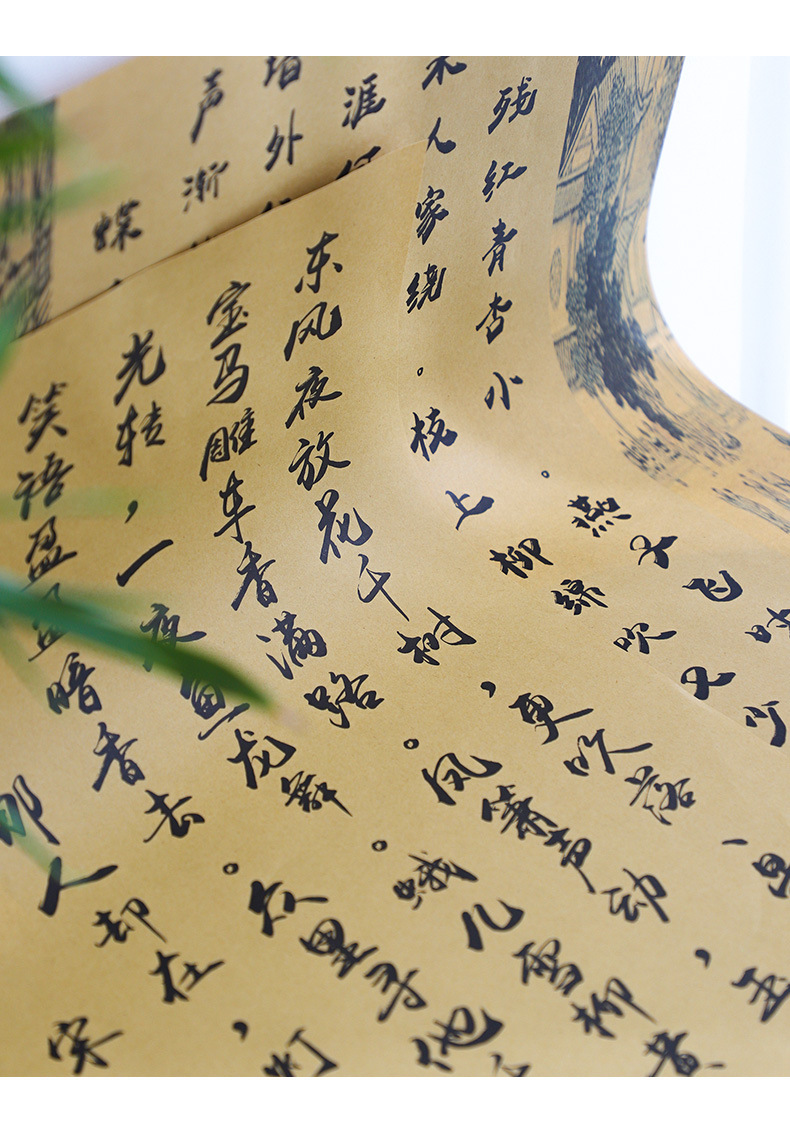 残红青杏小。燕子飞时
水人家绕。枝上柳绵吹又少
涯何
墙外
声渐
蝶
东风夜放花千树，更吹落、星
宝马雕车香满路。凤箫声动，玉
光转，一夜鱼龙舞。蛾儿雪柳黄
笑语盈盈暗香去。众里寻他
那人却在，灯
宋